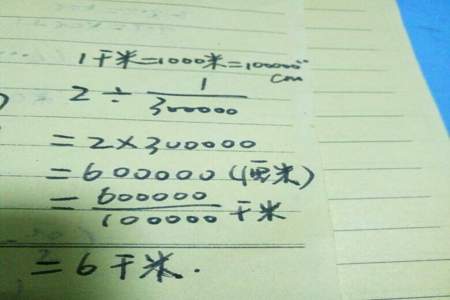 1千米=1000米=100000
cm
2÷1/300000
=2×300000
=600000(厘米)
=600000/100000千米
=6千米.